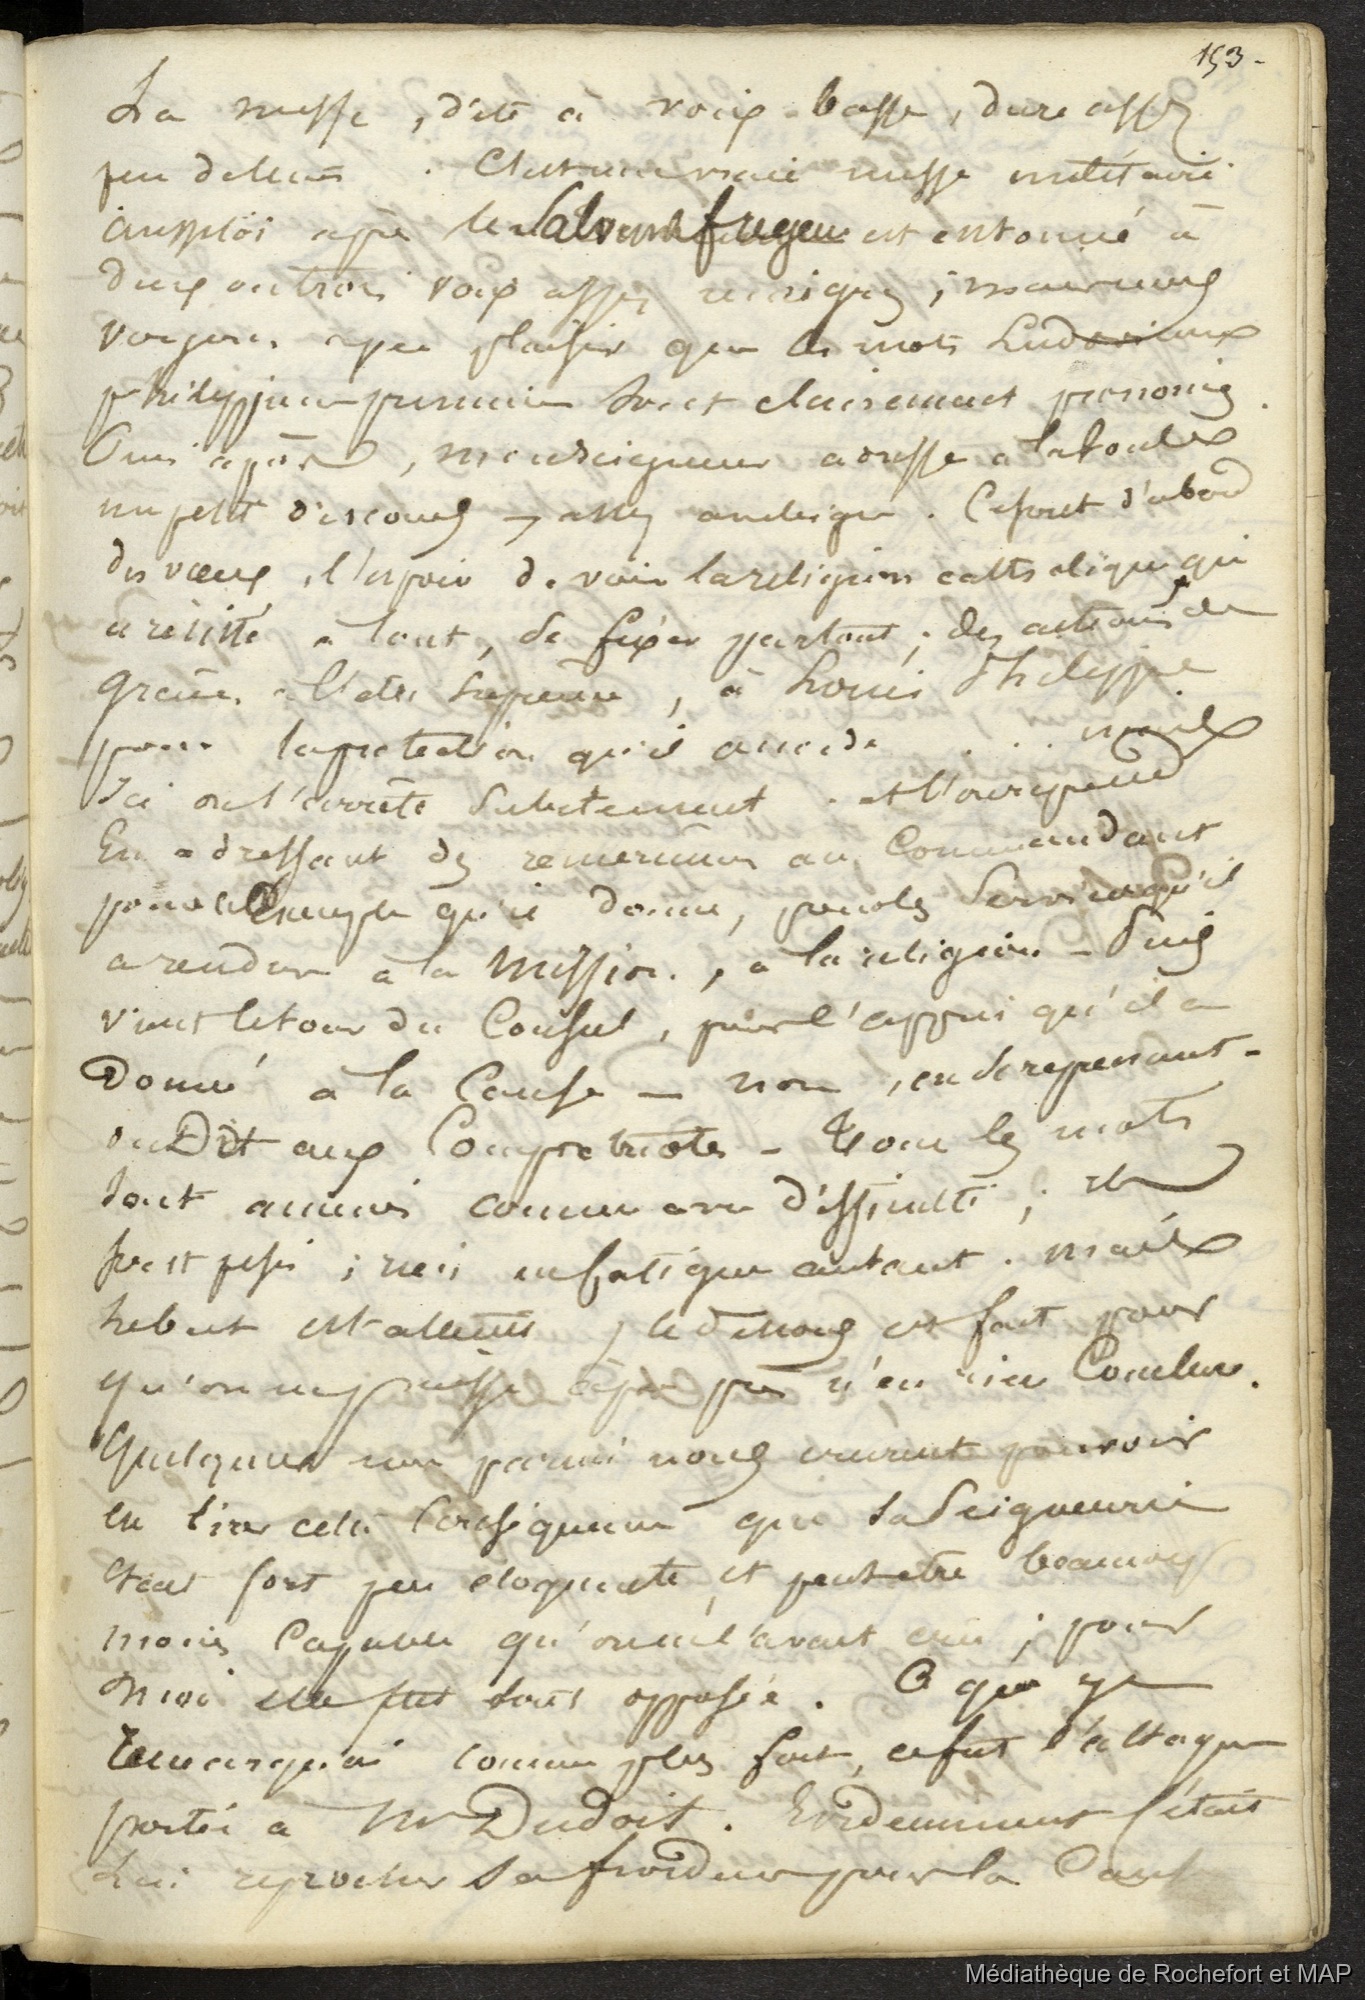 153-
La messe, dite à voix basse, dure assez
peu de tems. C'est une vraie messe militaire
aussitôt après le Salvum fac regem est entonné à
deux ou trois voix assez maigres ; mais nous
voyons avec plaisir que les mots Ludovicum
philippum premier sont clairement prononcés.
Puis après, monseigneur adresse à la foule
un petit discours, assez ambigu. Ce sont d'abord
des vœux, l'espoir de voir la religion catholique qui
a résisté à tout, se fixer partout ; des actions de
grâces à l'être suprême, à Louis Philippe
pour la protection qu'il accorde ... mais
Ici on l'arrête subitement . et l'on reprend
En adressant des remerciemens au Commandant
pour l'Exemple qu'il donne, pour les Services qu'il
a rendus à la Mission, à la religion - Puis
vient le tour du Consul, pour l'appui qu'il a
Donné à la Cause - non, en se reprenant -
on Dit aux Compatriotes - Tous les mots
sont amenés comme avec difficulté ; ils
sont pesés ; rien ne fatigue autant. mais
le but est atteint, le discours est fait pour
qu'on ne puisse à peu près n'en rien Conclure.
Quelques uns parmi nous crurent pouvoir
en tirer cette Conséquence que Sa Seigneurie
était fort peu éloquente, et peut être beaucoup
moins Capable qu'on ne l'avait cru ; pour
moi elle fut toute opposée. Ce que je
remarquai comme plus fort, ce fut l'attaque
portée à Mr Dudoit. Evidemment c'était
lui reprocher sa froideur pour la Cause
Médiathèque de Rochefort et MAP